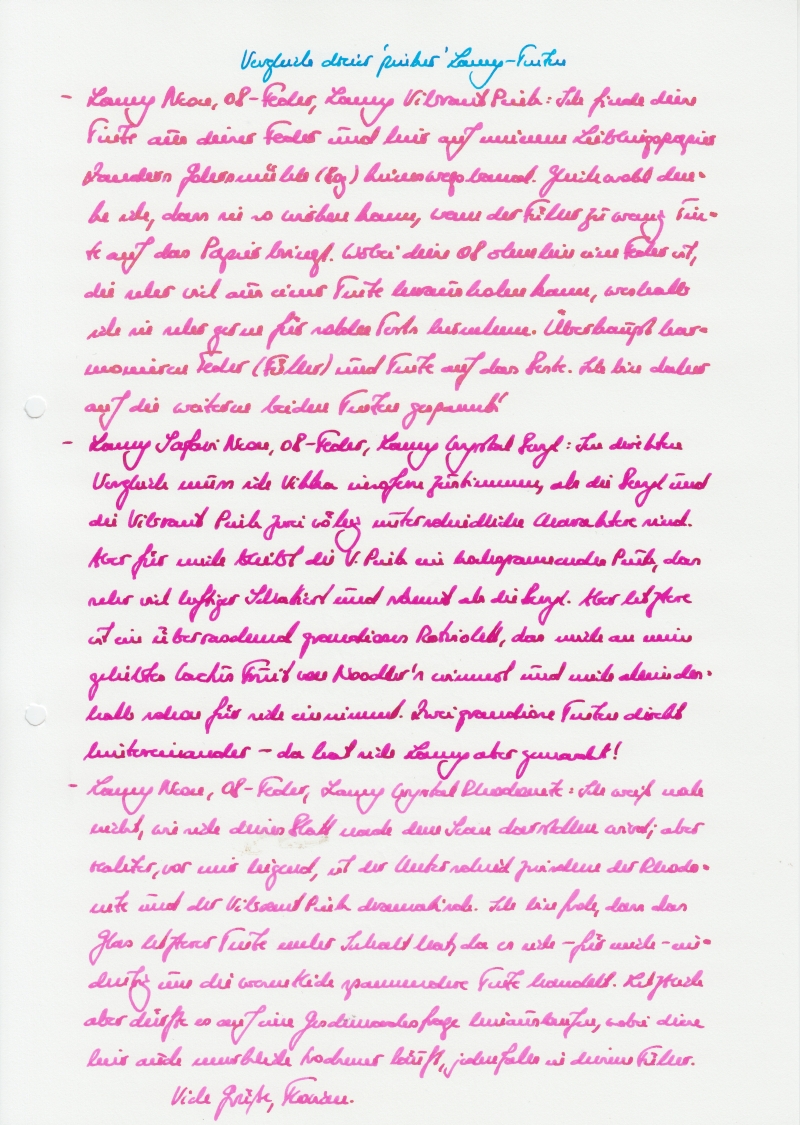 Vergleich dreier 'pinker' Lamy-Tinten
- Lamy Neon, 08-Feder, Lamy Vibrant Pink: Ich finde diese
Tinte aus dieser Feder und hier auf meinem Lieblingspapier
Zanders Gohrsmühle (80g) keineswegs banal. Gleichwohl den-
ke ich, dass sie so wirken kann, wenn der Füller zu wenig Tin-
te auf das Papier bringt. Wobei diese 08 ohnehin eine Feder ist,
die sehr viel aus einer Tinte herausholen kann, weshalb
ich sie sehr gerne für solche Tests hernehme. Überhaupt har-
monieren Feder (Füller) und Tinte auf das Beste. Ich bin daher
auf die weiteren beiden Tinten gespannt!
- Lamy Safari Neon, 08-Feder, Lamy Crystal Beryl: Im direkten
Vergleich muss ich insofern zustimmen, als die Beryl und
die Vibrant Pink zwei völlig unterschiedliche Charaktere sind.
Aber für mich bleibt die V. Pink ein Pink, das
sehr viel luftiger schattiert und scheint als die Beryl. Aber letztere
ist ein überraschend grandioses Rotviolett, das mich an mein
geliebtes Cactus Fruit von Noodler's erinnert und mich allein des-
halb schon für sich einnimmt. Zwei grandiose Tinten direkt
hintereinander - da hat sich Lamy aber gemacht!
- Lamy Neon, 08-Feder, Lamy Crystal Rhodonite: Ich weiß noch
nicht, wie sich dieses Blatt nach dem Scan darstellen wird; aber
realiter, vor mir liegend, ist der Unterschied zwischen der Rhodo-
nite und der Vibrant Pink dramatisch. Ich bin froh, dass das
Glas letzterer Tinte mehr Inhalt hat, da es sich - für mich - ein-
deutig um die spannendere Tinte handelt. Letztlich
aber dürfte es auf eine Geschmacksfrage hinauslaufen, wobei diese
hier auch merklich trockener läuft, jedenfalls in diesem Füller.
Viele Grüße, Florian.